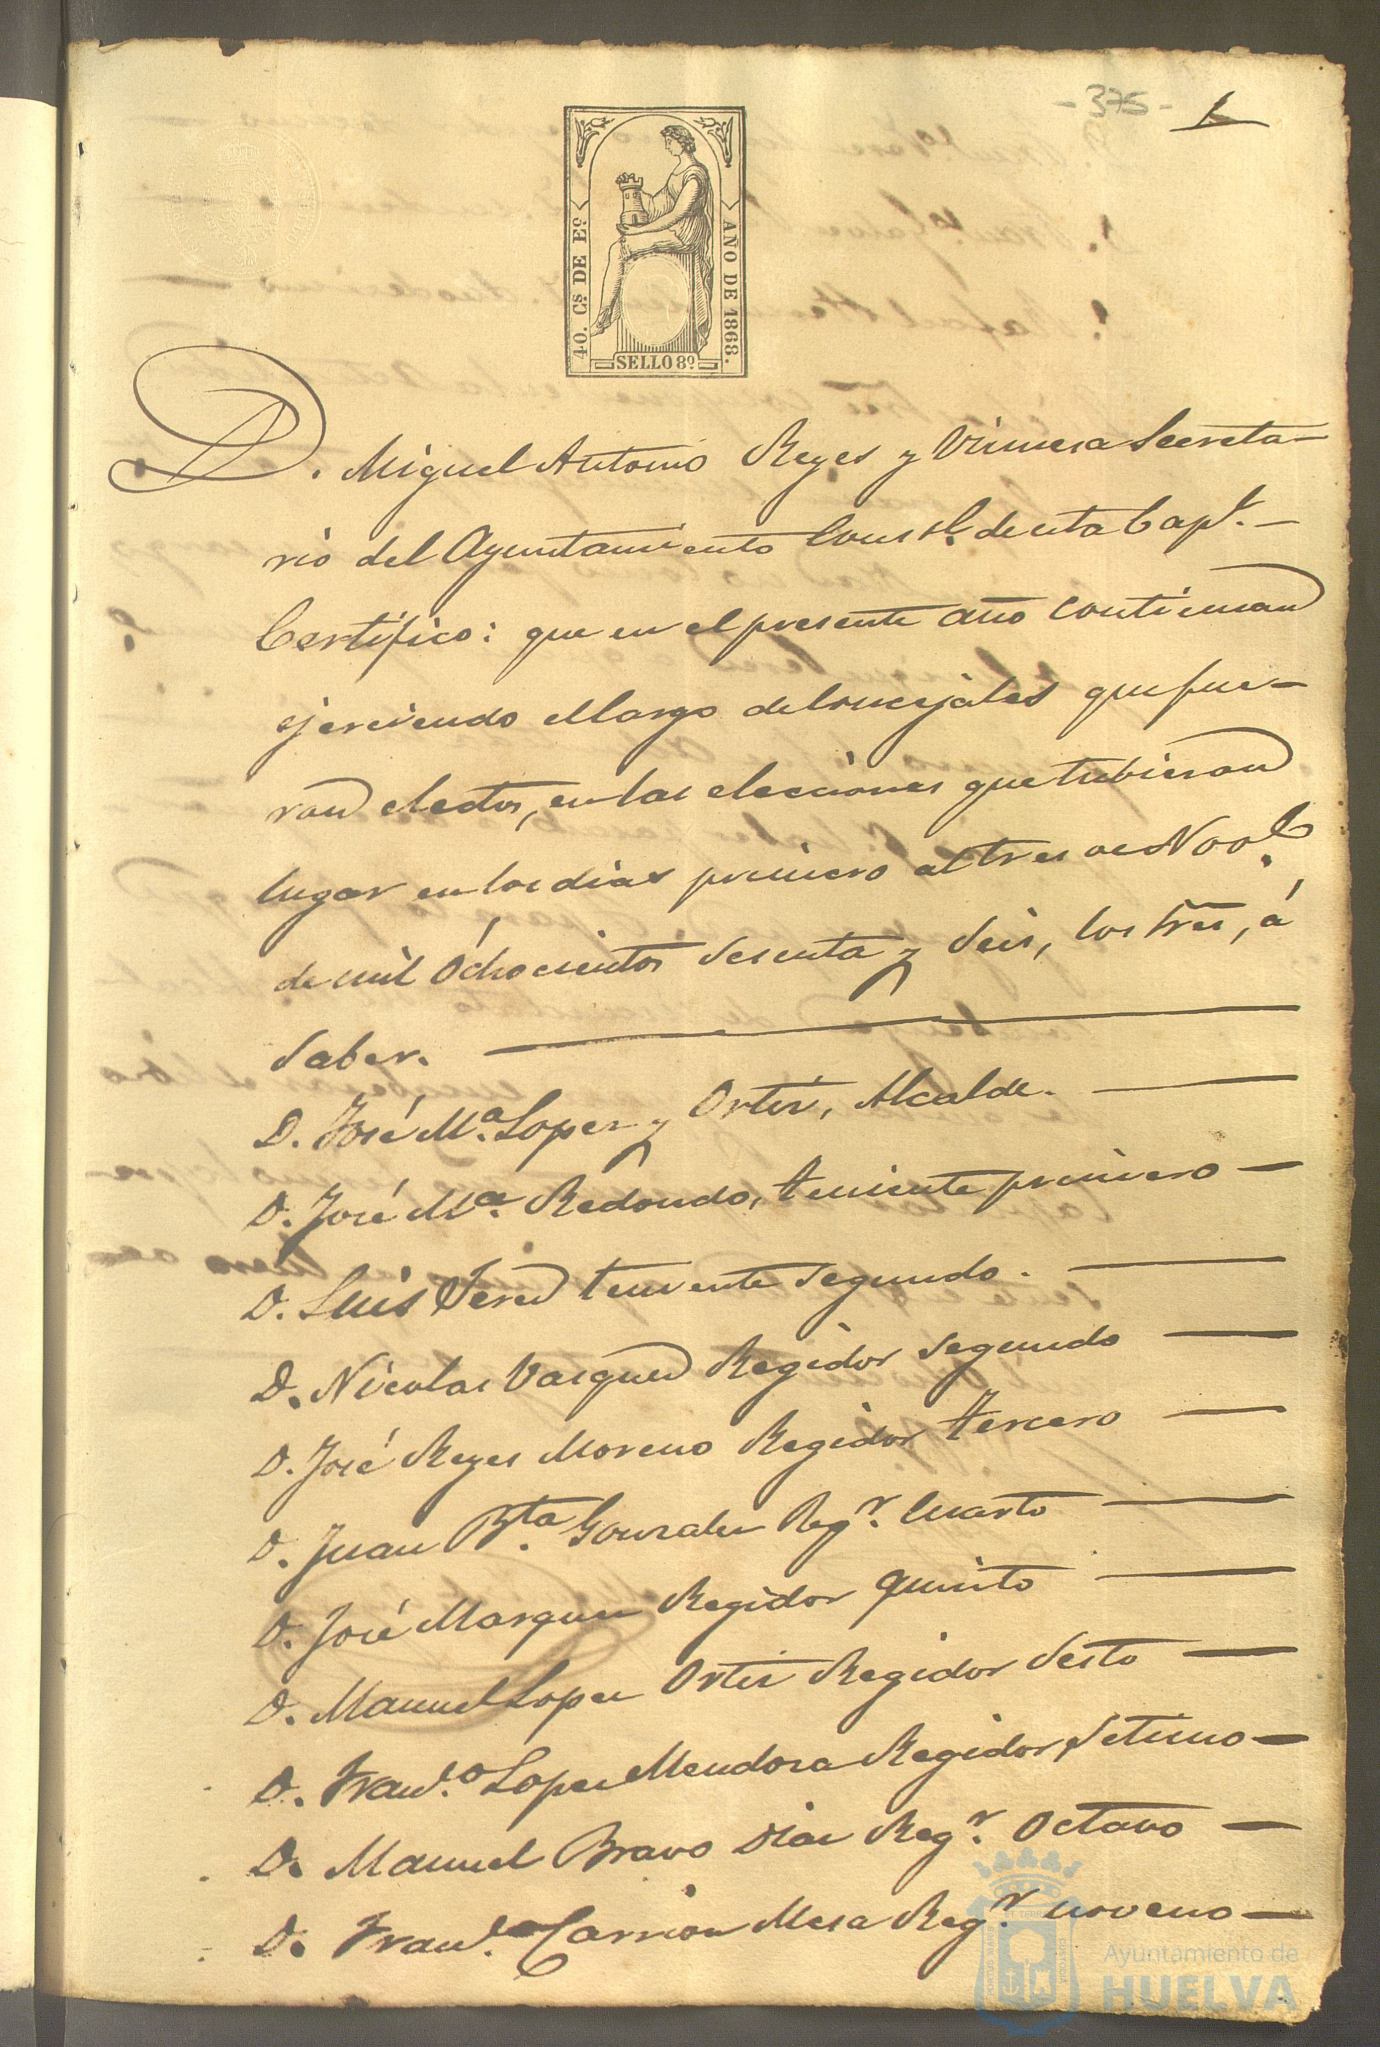 - 375 -
1
40. Cs DE Eo.
AÑO DE 1868.
SELLO 8º
D. Miguel Antonio Reyes y Vizuera Secreta-
rio del Ayuntamiento Const.l de esta Cap.l -
Certifico: que en el presente año continuan
ejerciendo el Cargo de Concejales que fue-
ron electos, en las elecciones que tubieron
lugar en los dias primero al tres de Nov.e
de mil Óchocientos Sesenta y Seis, los Sres, á
Saber.
D. José M.a Lopez y Ortiz, Alcalde.
D. José M.a Redondo, teniente primero -
D. Luis Jerez teniente Segundo.
D. Nicolas Vasquez Regidor Segundo
D. José Reyes Moreno Regidor tercero
D. Juan B.ta Gonzalez Reg.r Cuarto
D. José Marquez Regidor quinto
D. Manuel Lopez Ortiz Regidor Sesto
D. Fran.co Lopez Mendoza Regidor Setimo -
D. Manuel Bravo Diaz Reg.r Octavo -
D. Fran.co Carrion Mesa Reg.r noveno -
Ayuntamiento de
HUELVA